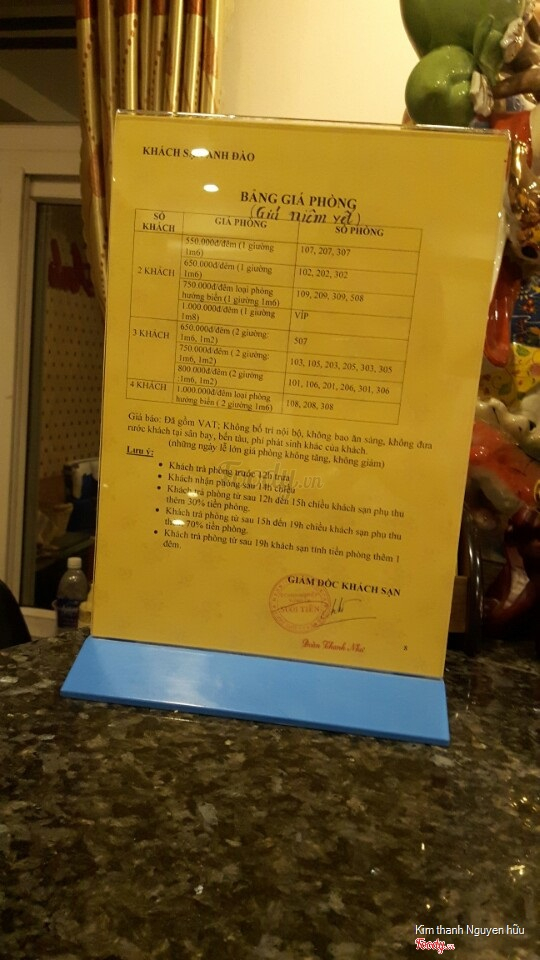 KHÁCH SẠN ANH ĐÀO
BẢNG GIÁ PHÒNG
(Giá niêm yết)
SỐ KHÁCH GIÁ PHÒNG SỐ PHÒNG
2 KHÁCH
550.000đ/đêm (1 giường 1m6) 107, 207, 307
650.000đ/đêm (1 giường 1m6) 102, 202, 302
750.000đ/đêm loại phòng hướng biển (1 giường 1m6) 109, 209, 309, 508
1.000.000đ/đêm (1 giường 1m8) VÍP
3 KHÁCH
650.000đ/đêm ( 2 giường: 1m6, 1m2) 507
750.000đ/đêm ( 2 giường: 1m6, 1m2) 103, 105, 203, 205, 303, 305
800.000đ/đêm (2 giường 1m6, 1m2) 101, 106, 201, 206, 301, 306
4 KHÁCH
1.000.000đ/đêm loại phòng hướng biển ( 2 giường 1m6) 108, 208, 308
Giá báo: Đã gồm VAT; Không bố trí nội bộ, không bao ăn sáng, không đưa
rước khách tại sân bay, bến tàu, phí phát sinh khác của khách.
(những ngày lễ lớn giá phòng không tăng, không giảm)
Lưu ý:
• Khách trả phòng trước 12h trưa
• Khách nhận phòng sau 14h chiều
• Khách trả phòng từ sau 12h đến 15h chiều khách sạn phụ thu
thêm 30% tiền phòng.
• Khách trả phòng từ sau 15h đến 19h chiều khách sạn phụ thu
thêm 70% tiền phòng.
• Khách trả phòng từ sau 19h khách sạn tính tiền phòng thêm 1
đêm.
Foody.vn
GIÁM ĐỐC KHÁCH SẠN
8
Kim thanh Nguyen hữu
Foody.vn